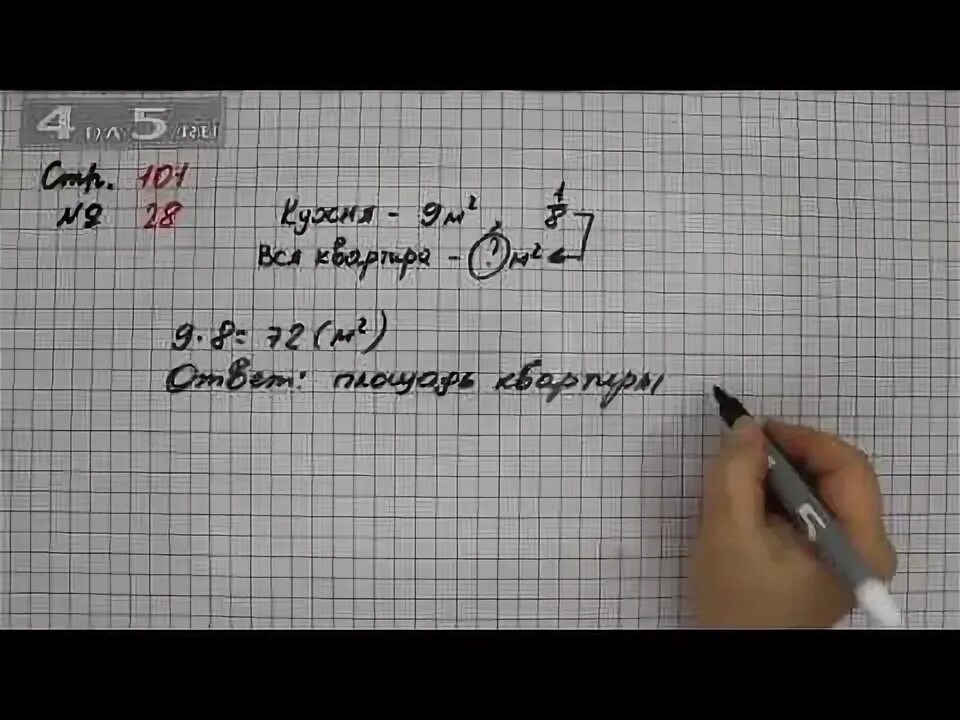 4 на 5
Стр. 101
№ 28
Кухня - 9 м² 1/8
Вся квартира - ? м²
9 · 8 = 72 (м²)
Ответ: площадь квартиры